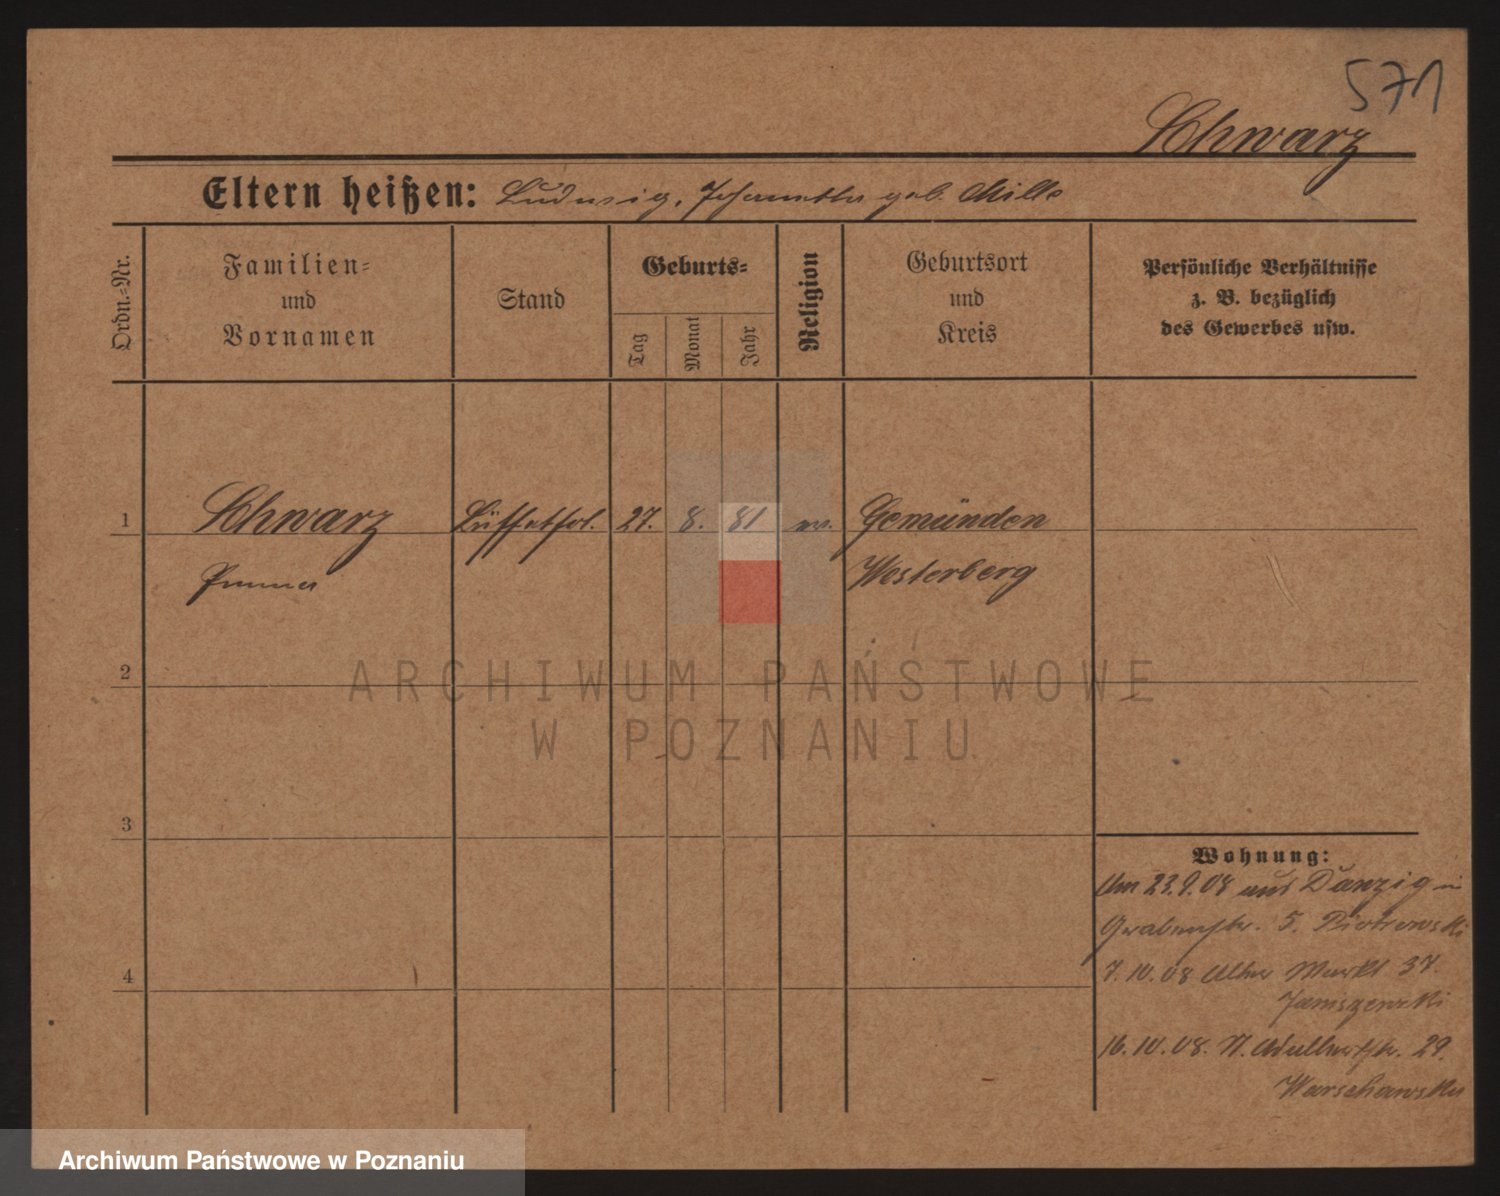 571
Schwarz
Eltern heißen: Ludwig, Johanette geb. Mille
Ordn.-Nr.
Familien-
und
Vornamen
Stand
Geburts-
Tag
Monat
Jahr
Religion
Geburtsort
und
Kreis
Persönliche Verhältnisse
z. B. bezüglich
des Gewerbes usw.
1 Schwarz Büffetfrl. 27. 8. 81 Gemünden
Westerberg
2
ARCHIWUM PAŃSTWOWE
W POZNANIU
3
4
Wohnung:
Am 23.9.08 aus Danzig in
Grabenstr. 5. Piotrowski
7.10.08 Alter Markt 37.
Janiszewski
16.10.08. St. Adalbertstr. 29.
Warschawski
Archiwum Państwowe w Poznaniu